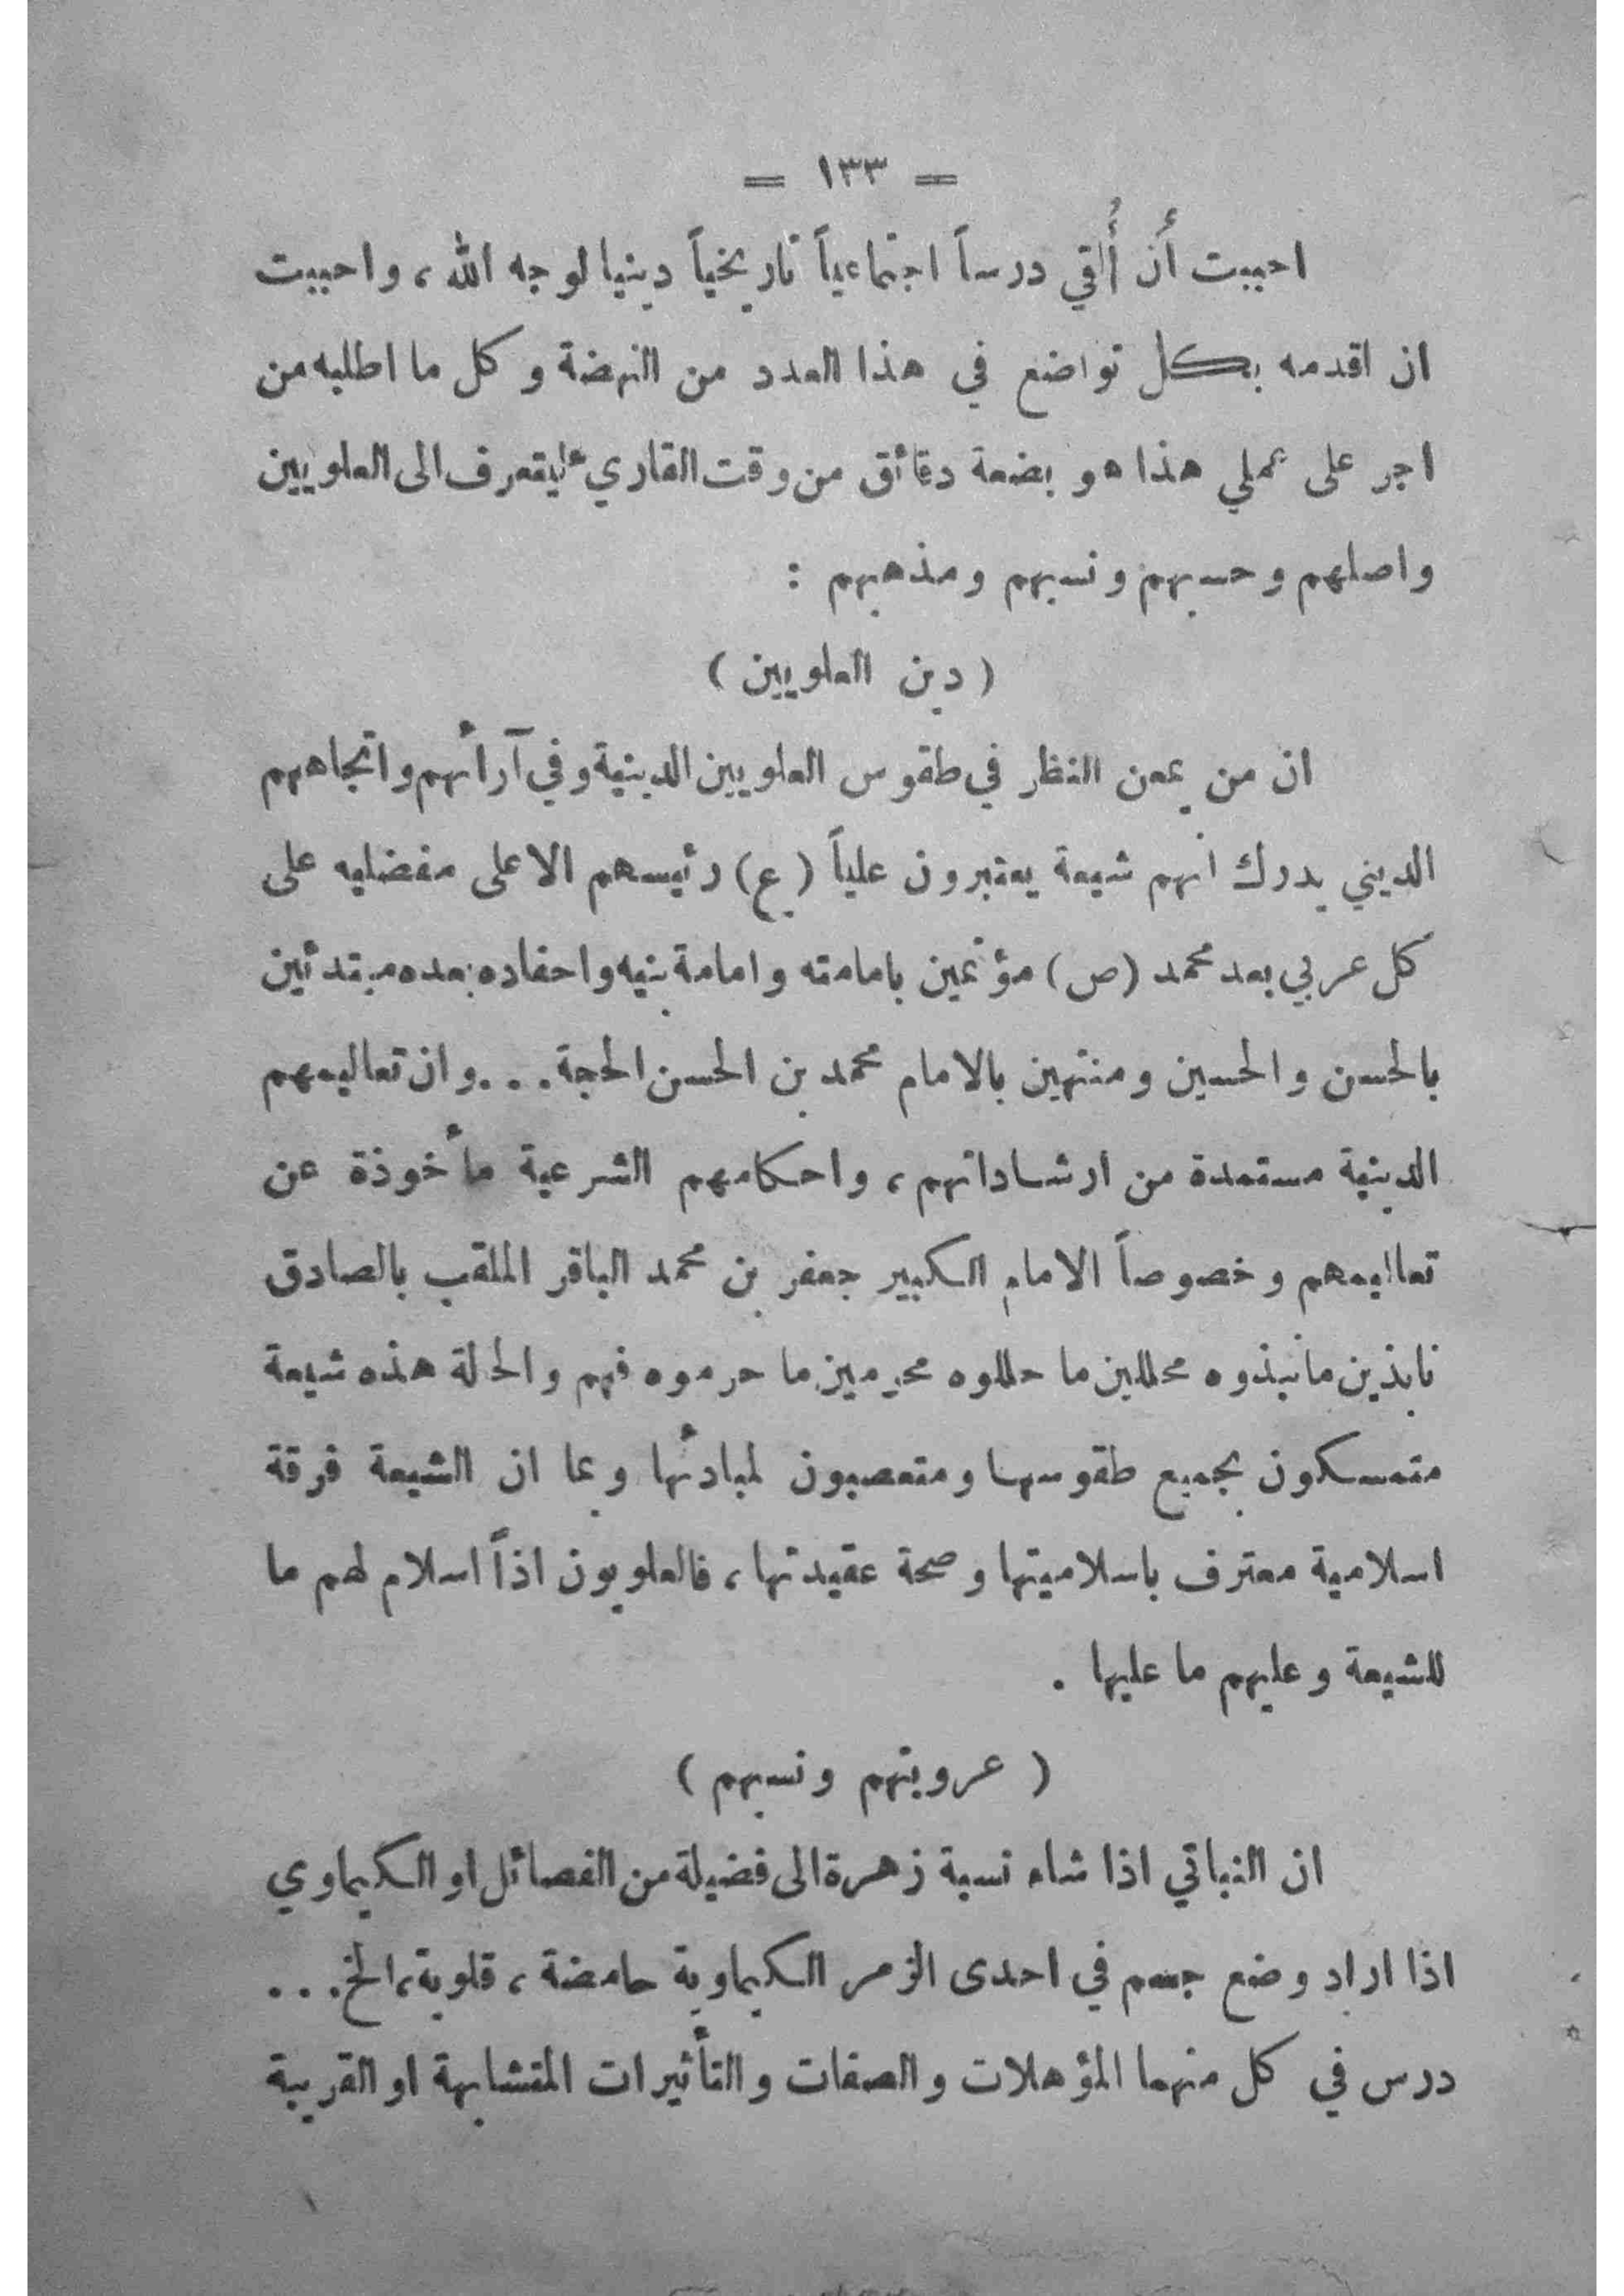 = ١٣٣ =
احببت أن أُلقي درساً اجتماعياً تاريخياً دينيا لوجه الله ، واحببت
ان اقدمه بكل تواضع في هذا العدد من النهضة وكل ما اطلبه من
اجر على عملي هذا هو بضعة دقائق من وقت القاريء ليتعرف الى العلويين
واصلهم وحسبهم ونسبهم ومذهبهم :
( دين العلويين )
ان من يمعن النظر في طقوس العلويين الدينية وفي آرائهم واتجاههم
الديني يدرك انهم شيعة يعتبرون علياً (ع) رئيسهم الاعلى مفضليه على
كل عربي بعد محمد (ص) مؤتمين بامامته وامامة بنيه واحفاده بعده مبتدئين
بالحسن والحسين ومنتهين بالامام محمد بن الحسن الحجة . . . وان تعاليمهم
الدينية مستمدة من ارشاداتهم ، واحكامهم الشرعية مأخوذة عن
تعاليمهم وخصوصاً الامام الكبير جعفر بن محمد الباقر الملقب بالصادق
نابذين ما نبذوه محللين ما حللوه محرمين ما حرموه فهم والحلة هذه شيعة
متمسكون بجميع طقوسها ومتعصبون لمبادئها وبما ان الشيعة فرقة
اسلامية معترف باسلاميتها وصحة عقيدتها ، فالعلويون اذاً اسلام لهم ما
للشيعة وعليهم ما عليها .
( عروبتهم ونسبهم )
ان النباتي اذا شاء نسبة زهرة الى فضيلة من الفصائل او الكيماوي
اذا اراد وضع جسم في احدى الزمر الكيماوية حامضة ، قلوية ، الخ . . .
درس في كل منهما المؤهلات والصفات والتأثيرات المتشابهة او القريبة